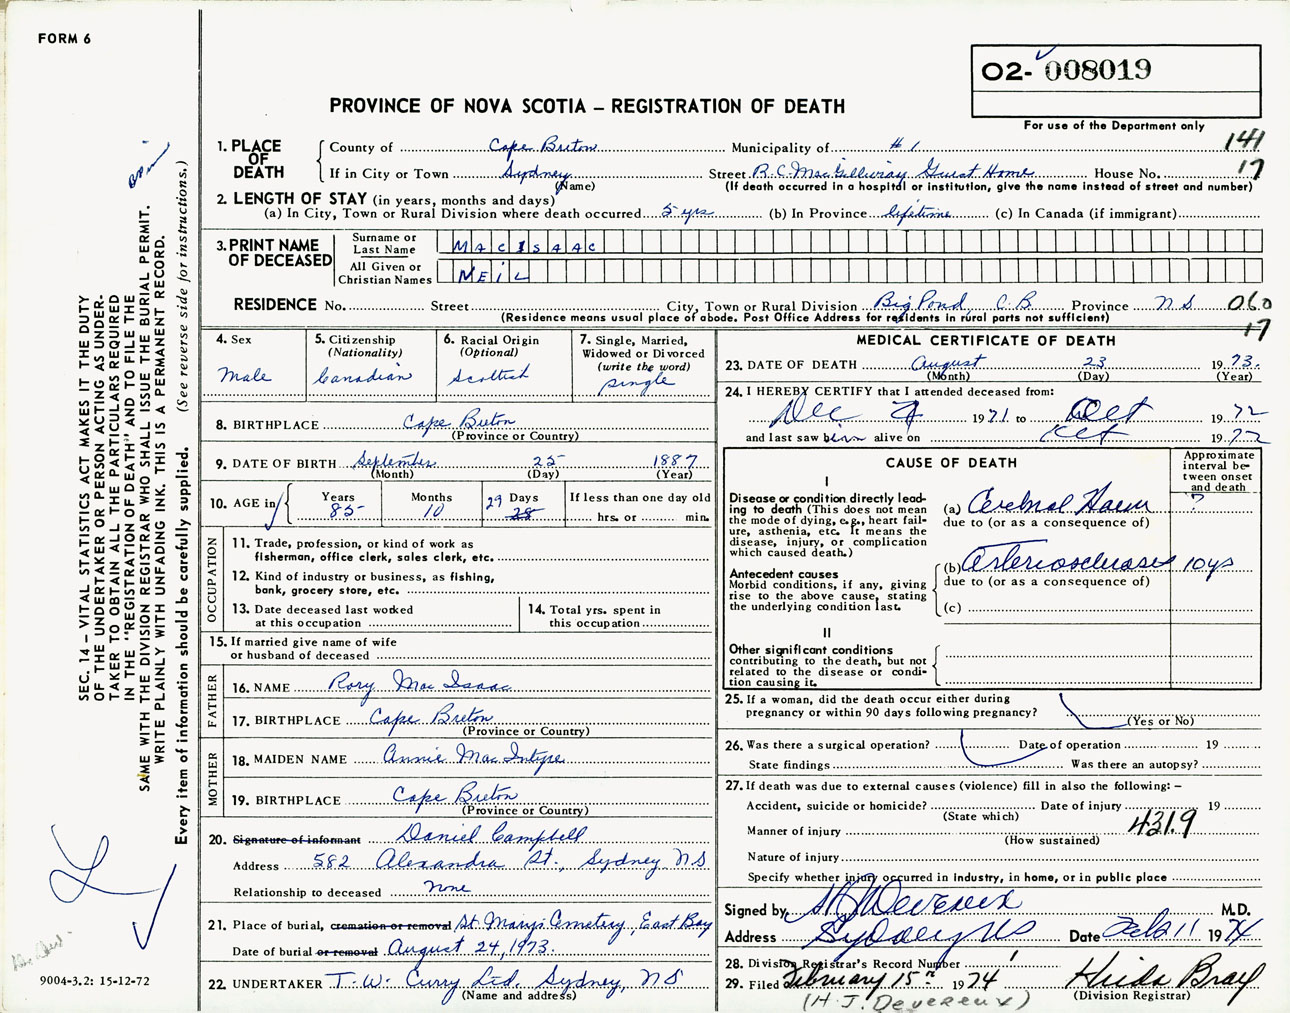 FORM 6
O2- 008019
For use of the Department only
PROVINCE OF NOVA SCOTIA – REGISTRATION OF DEATH
141
17
1. PLACE OF DEATH
County of Cape Breton Municipality of #1
If in City or Town Sydney Street R.C. MacGillivray Guest Home House No.
(Name) (If death occurred in a hospital or institution, give the name instead of street and number)
2. LENGTH OF STAY (in years, months and days)
(a) In City, Town or Rural Division where death occurred 5 yrs (b) In Province lifetime (c) In Canada (if immigrant)
3. PRINT NAME OF DECEASED
Surname or Last Name MACISAAC
All Given or Christian Names NEIL
RESIDENCE No. Street City, Town or Rural Division Big Pond, C.B. Province N S 060
(Residence means usual place of abode. Post Office Address for residents in rural parts not sufficient)
17
4. Sex
Male
5. Citizenship
(Nationality)
Canadian
6. Racial Origin
(Optional)
Scottish
7. Single, Married,
Widowed or Divorced
(write the word)
single
8. BIRTHPLACE Cape Breton
(Province or Country)
9. DATE OF BIRTH September 25 1887
(Month) (Day) (Year)
10. AGE in
Years 85
Months 10
29 Days 28
If less than one day old
hrs. or min.
OCCUPATION
11. Trade, profession, or kind of work as
fisherman, office clerk, sales clerk, etc.
12. Kind of industry or business, as fishing,
bank, grocery store, etc.
13. Date deceased last worked
at this occupation
14. Total yrs. spent in
this occupation
15. If married give name of wife
or husband of deceased
FATHER
16. NAME Rory Mac Isaac
17. BIRTHPLACE Cape Breton
(Province or Country)
MOTHER
18. MAIDEN NAME Annie Mac Intyre
19. BIRTHPLACE Cape Breton
(Province or Country)
20. Signature of informant Daniel Campbell
Address 582 Alexandra St., Sydney NS
Relationship to deceased None
21. Place of burial, cremation or removal St. Mary's Cemetery, East Bay
Date of burial or removal August 24, 1973.
22. UNDERTAKER T. W. Curry Ltd. Sydney, NS
(Name and address)
MEDICAL CERTIFICATE OF DEATH
23. DATE OF DEATH August 23 1973.
(Month) (Day) (Year)
24. I HEREBY CERTIFY that I attended deceased from:
Dec 1971 to Oct 1972
and last saw him alive on Oct 1972
CAUSE OF DEATH
Approximate
interval be-
tween onset
and death
I
Disease or condition directly lead-
ing to death (This does not mean
the mode of dying, e.g., heart fail-
ure, asthenia, etc. It means the
disease, injury, or complication
which caused death.)
(a) Cerebral Haem ?
due to (or as a consequence of)
Antecedent causes
Morbid conditions, if any, giving
rise to the above cause, stating
the underlying condition last.
(b) Arteriosclerosis 10 ys
due to (or as a consequence of)
(c)
II
Other significant conditions
contributing to the death, but not
related to the disease or condi-
tion causing it.
25. If a woman, did the death occur either during
pregnancy or within 90 days following pregnancy?
(Yes or No)
26. Was there a surgical operation? Date of operation 19
State findings Was there an autopsy?
27. If death was due to external causes (violence) fill in also the following: –
Accident, suicide or homicide? Date of injury 19
(State which)
Manner of injury 431.9
(How sustained)
Nature of injury
Specify whether injury occurred in industry, in home, or in public place
Signed by H J Devereux M.D.
Address Sydney NS Date Feb 11 1974
28. Division Registrar's Record Number
29. Filed February 15th 1974 Hilda Bray
(H. J. Devereux) (Division Registrar)
SEC. 14 – VITAL STATISTICS ACT MAKES IT THE DUTY
OF THE UNDERTAKER OR PERSON ACTING AS UNDER-
TAKER TO OBTAIN ALL THE PARTICULARS REQUIRED
IN THE "REGISTRATION OF DEATH" AND TO FILE THE
SAME WITH THE DIVISION REGISTRAR WHO SHALL ISSUE THE BURIAL PERMIT.
WRITE PLAINLY WITH UNFADING INK. THIS IS A PERMANENT RECORD.
Every item of information should be carefully supplied. (See reverse side for instructions.)
9004-3.2: 15-12-72